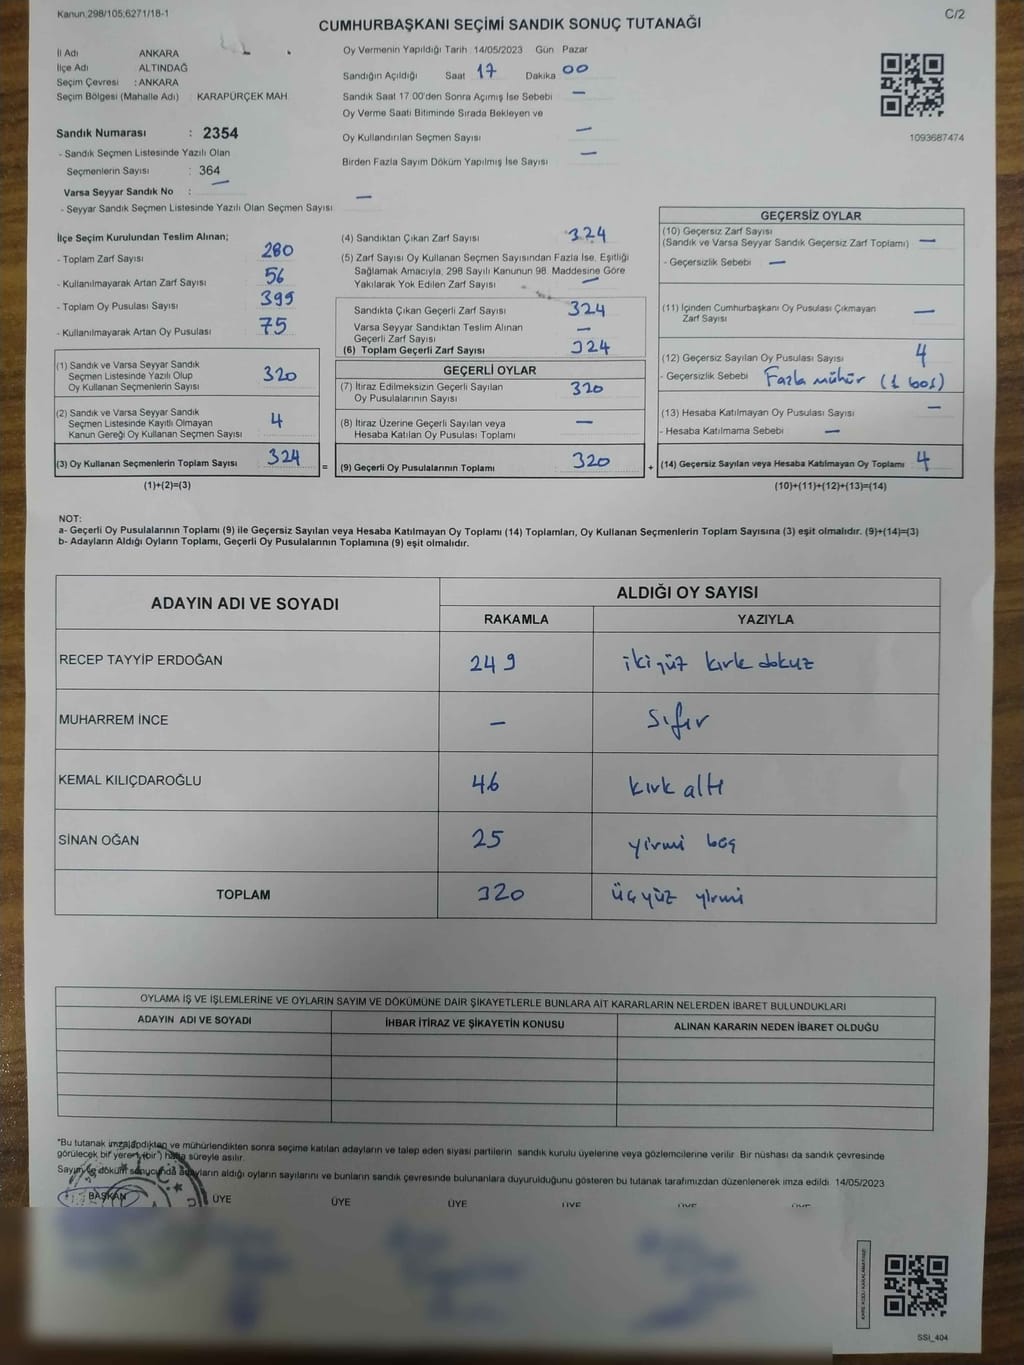 Kanun:298/105;6271/18-1
C/2
CUMHURBAŞKANI SEÇİMİ SANDIK SONUÇ TUTANAĞI
İl Adı ANKARA
İlçe Adı ALTINDAĞ
Seçim Çevresi : ANKARA
Seçim Bölgesi (Mahalle Adı) KARAPÜRÇEK MAH.
Sandık Numarası : 2354
- Sandık Seçmen Listesinde Yazılı Olan
Seçmenlerin Sayısı : 364
Varsa Seyyar Sandık No : —
- Seyyar Sandık Seçmen Listesinde Yazılı Olan Seçmen Sayısı —
Oy Vermenin Yapıldığı Tarih 14/05/2023 Gün Pazar
Sandığın Açıldığı Saat 17 Dakika 00
Sandık Saat 17.00'den Sonra Açımış İse Sebebi —
Oy Verme Saati Bitiminde Sırada Bekleyen ve
Oy Kullandırılan Seçmen Sayısı —
Birden Fazla Sayım Döküm Yapılmış İse Sayısı —
1093687474
İlçe Seçim Kurulundan Teslim Alınan;
- Toplam Zarf Sayısı 280
- Kullanılmayarak Artan Zarf Sayısı 56
- Toplam Oy Pusulası Sayısı 399
- Kullanılmayarak Artan Oy Pusulası 75
(1) Sandık ve Varsa Seyyar Sandık
Seçmen Listesinde Yazılı Olup
Oy Kullanan Seçmenlerin Sayısı 320
(2) Sandık ve Varsa Seyyar Sandık
Seçmen Listesinde Kayıtlı Olmayan
Kanun Gereği Oy Kullanan Seçmen Sayısı 4
(3) Oy Kullanan Seçmenlerin Toplam Sayısı 324
(1)+(2)=(3)
(4) Sandıktan Çıkan Zarf Sayısı 324
(5) Zarf Sayısı Oy Kullanan Seçmen Sayısından Fazla İse, Eşitliği
Sağlamak Amacıyla, 298 Sayılı Kanunun 98. Maddesine Göre
Yakılarak Yok Edilen Zarf Sayısı —
Sandıkta Çıkan Geçerli Zarf Sayısı 324
Varsa Seyyar Sandıktan Teslim Alınan
Geçerli Zarf Sayısı —
(6) Toplam Geçerli Zarf Sayısı 324
GEÇERLİ OYLAR
(7) İtiraz Edilmeksizin Geçerli Sayılan
Oy Pusulalarının Sayısı 320
(8) İtiraz Üzerine Geçerli Sayılan veya
Hesaba Katılan Oy Pusulası Toplamı —
= (9) Geçerli Oy Pusulalarının Toplamı 320 +
GEÇERSİZ OYLAR
(10) Geçersiz Zarf Sayısı
(Sandık ve Varsa Seyyar Sandık Geçersiz Zarf Toplamı) —
- Geçersizlik Sebebi —
(11) İçinden Cumhurbaşkanı Oy Pusulası Çıkmayan
Zarf Sayısı —
(12) Geçersiz Sayılan Oy Pusulası Sayısı 4
- Geçersizlik Sebebi Fazla mühür (1 boş)
(13) Hesaba Katılmayan Oy Pusulası Sayısı —
- Hesaba Katılmama Sebebi —
(14) Geçersiz Sayılan veya Hesaba Katılmayan Oy Toplamı 4
(10)+(11)+(12)+(13)=(14)
NOT:
a- Geçerli Oy Pusulalarının Toplamı (9) ile Geçersiz Sayılan veya Hesaba Katılmayan Oy Toplamı (14) Toplamları, Oy Kullanan Seçmenlerin Toplam Sayısına (3) eşit olmalıdır. (9)+(14)=(3)
b- Adayların Aldığı Oyların Toplamı, Geçerli Oy Pusulalarının Toplamına (9) eşit olmalıdır.
ADAYIN ADI VE SOYADI ALDIĞI OY SAYISI
RAKAMLA YAZIYLA
RECEP TAYYİP ERDOĞAN 249 ikiyüz kırk dokuz
MUHARREM İNCE — sıfır
KEMAL KILIÇDAROĞLU 46 kırk altı
SİNAN OĞAN 25 yirmi beş
TOPLAM 320 üçyüz yirmi
OYLAMA İŞ VE İŞLEMLERİNE VE OYLARIN SAYIM VE DÖKÜMÜNE DAİR ŞİKAYETLERLE BUNLARA AİT KARARLARIN NELERDEN İBARET BULUNDUKLARI
ADAYIN ADI VE SOYADI İHBAR İTİRAZ VE ŞİKAYETİN KONUSU ALINAN KARARIN NEDEN İBARET OLDUĞU
*Bu tutanak imzalandıktan ve mühürlendikten sonra seçime katılan adayların ve talep eden siyasi partilerin sandık kurulu üyelerine veya gözlemcilerine verilir. Bir nüshası da sandık çevresinde
görülecek bir yere 1 (bir) hafta süreyle asılır.
Sayım ve döküm sonucunda adayların aldığı oyların sayılarını ve bunların sandık çevresinde bulunanlara duyurulduğunu gösteren bu tutanak tarafımızdan düzenlenerek imza edildi. 14/05/2023
BAŞKAN ÜYE ÜYE ÜYE ÜYE ÜYE ÜYE
SSİ_404